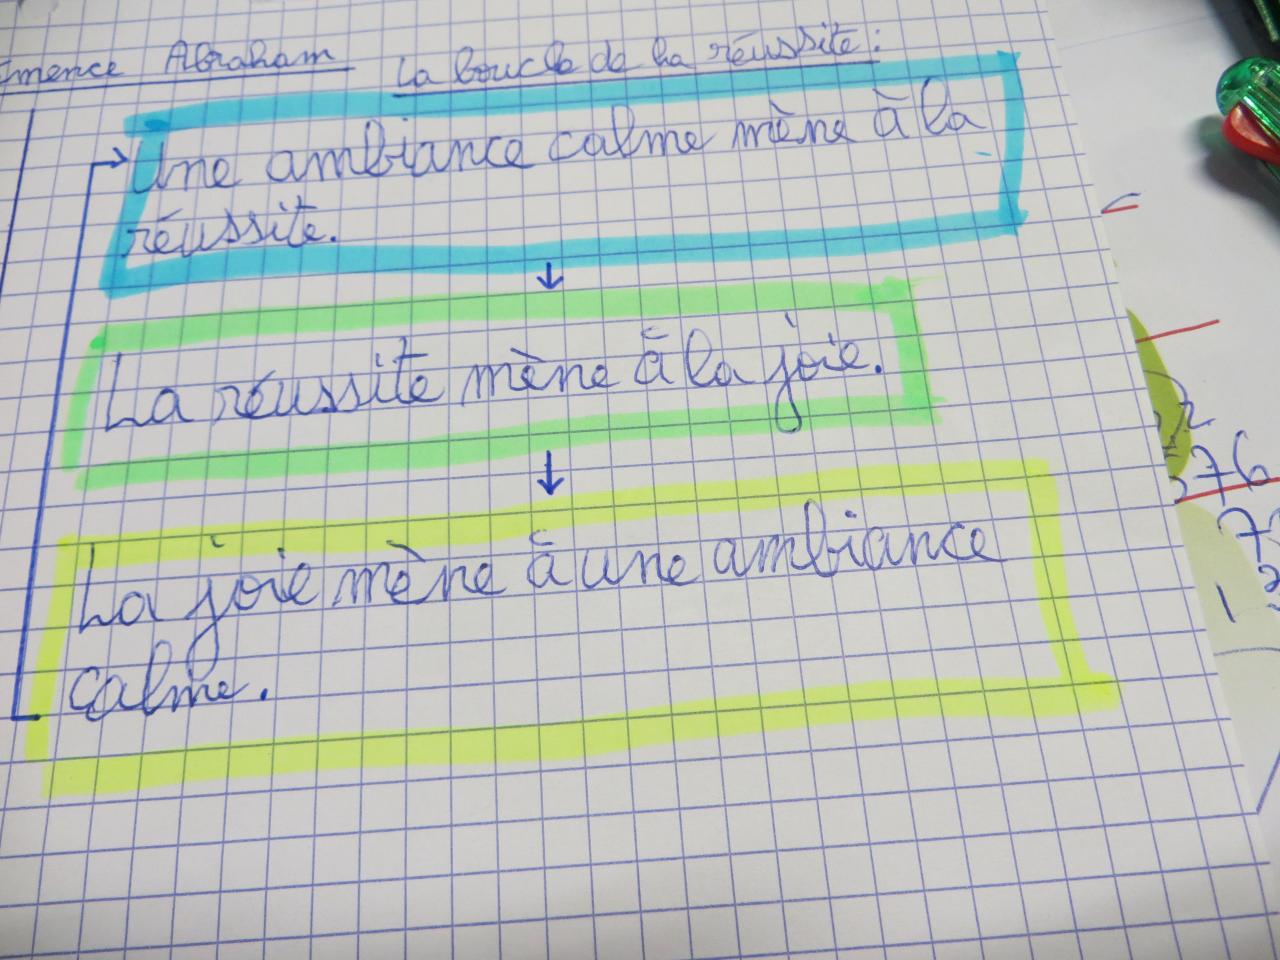 Abraham La boucle de la réussite:
Une ambiance calme mène à la
réussite.
La réussite mène à la joie.
La joie mène à une ambiance
calme.
76